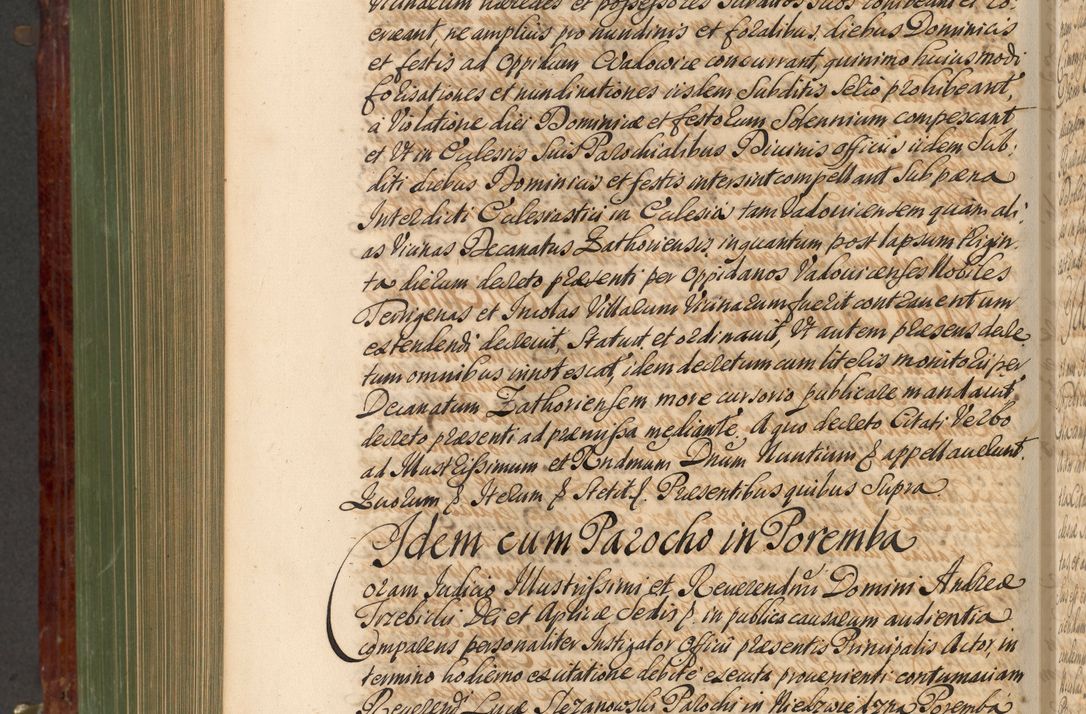 Vicinarum haeredes et possessores Subditos suos conveant et co-
erceant, ne amplius pro nundinis et foralibus, diebus Dominicis
et festis ad Oppidum Wadowice concurrant, quinimo huiusmodi
forisationes et nundinationes iisdem Subditis serio prohibeant,
à Violatione diei Dominicae et festorum Solennium compescant
et Vt in Ecclesiis Suis Parochialibus Diuinis officiis iidem Sub-
diti diebus Dominicis et festis intersint compellant Sub paena
Interdicti Ecclesiastici in Ecclesia tam Vadouicensem quàm ali-
as Vicinas Decanatus Zathoriensis, inquantum post lapsum trigin-
ta dierum decreto praesenti per Oppidanos Vadouicenses Nobiles
Terrigenas et Incolas Villarum Vicinarum fuerit contrauentum
extendendi decreuit, Statuit et ordinauit, Vt autem praesens decre-
tum omnibus innotescat, idem decretum cum literis monitoriis per
Decanatum Zathoriensem more cursorio publicare mandauit
decreto praesenti ad praemissa mediante. A quo decreto Citati Verbo
ad Illustrissimum et Rndmum Dnum Nuntium & appellauerunt.
Quorum & Iterum & Stetit &. Praesentibus quibus Supra
Idem cum Parocho in Poremba
Coram Judicio Illustrissimi et Reuerendmi Domini Andreae
Trzebicki Dei et Aplicae Sedis & in publica causarum audientia
comparens personaliter Instigator Officii praesentis Principalis Actor, in
termino hodierno ex citatione debitè executa prouenienti contumaciam
Reuerendi Lucae Slezanowski Parochi in Niedzwiedzna Poremba